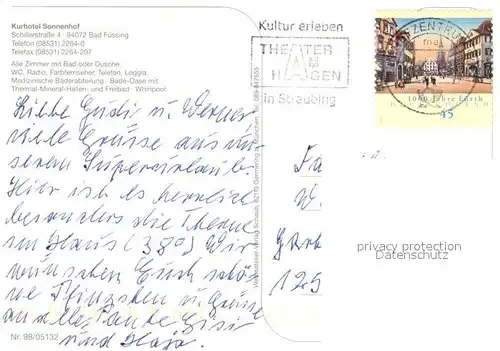 Kurhotel Sonnenhof
Schillerstraße 4 · 94072 Bad Füssing
Telefon (08531) 2264-0
Telefax (08531) 2264-207
Alle Zimmer mit Bad oder Dusche,
WC, Radio, Farbfernseher, Telefon, Loggia.
Medizinische Bäderabteilung · Bade-Oase mit
Thermal-Mineral-Hallen- und Freibad · Whirlpool
Kultur erleben
THEATER
AM
HAGEN
in Straubing
ZENTRUM
1000 Jahre Fürth
45
Liebe Gudi u. Werner
viele Grüsse aus un
serem Superurlaub.
Hier ist es herrlich
besonders die Therme
im Haus (38°) Wir
wünschen Euch schö
ne Pfingsten u. Grüsse
an alle Tante Gisi
und Hajo.
Fa
W.
125
privacy protection
Datenschutz
Nr. 98/05132